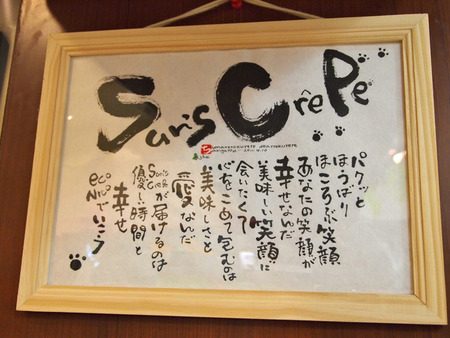 Sun's CrêPe
パクッと
ほうばり
ほころぶ笑顔
あなたの笑顔が
幸せなんだ
美味しい笑顔に
会いたくて
心をこめて包むのは
美味しさと
愛なんだ
Sun's Cが届けるのは
優しい時間と
幸せ
eco
NicoでいこうPLACEHOLDER